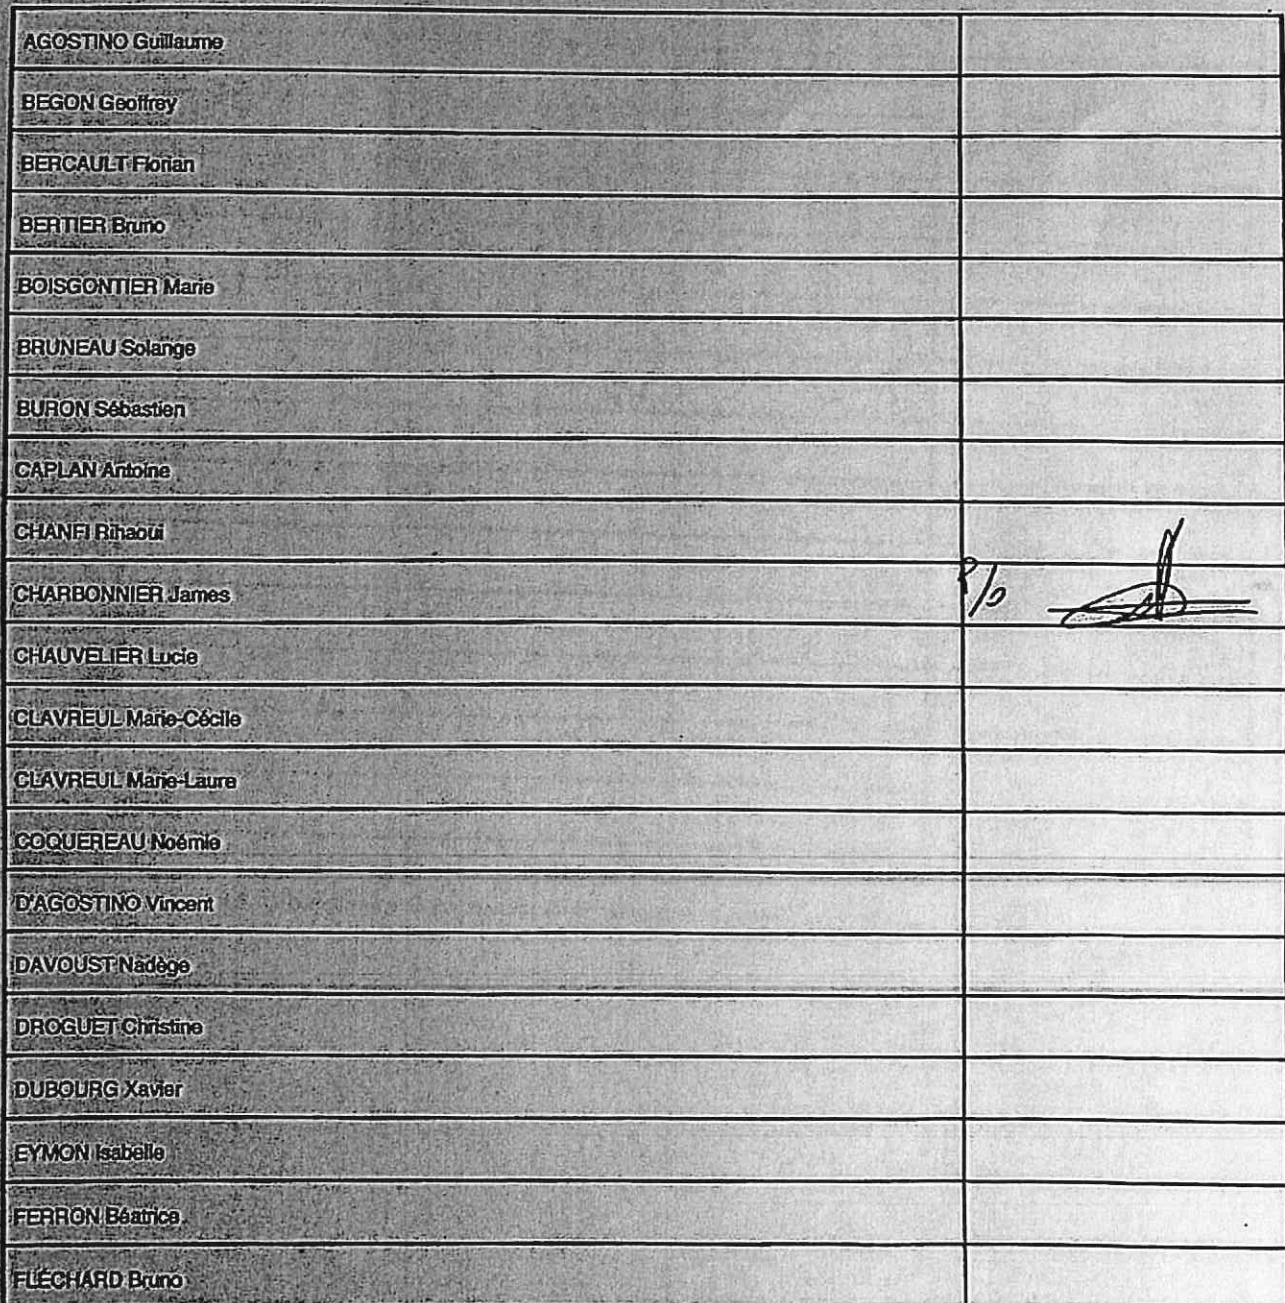 AGOSTINO Guillaume
BEGON Geoffrey
BERCAULT Florian
BERTIER Bruno
BOISGONTIER Marie
BRUNEAU Solange
BURON Sébastien
CAPLAN Antoine
CHANFI Rihaoui
CHARBONNIER James P/o
CHAUVELIER Lucie
CLAVREUL Marie-Cécile
CLAVREUL Marie-Laure
COQUEREAU Noémie
D'AGOSTINO Vincent
DAVOUST Nadège
DROGUET Christine
DUBOURG Xavier
EYMON Isabelle
FERRON Béatrice
FLÉCHARD Bruno